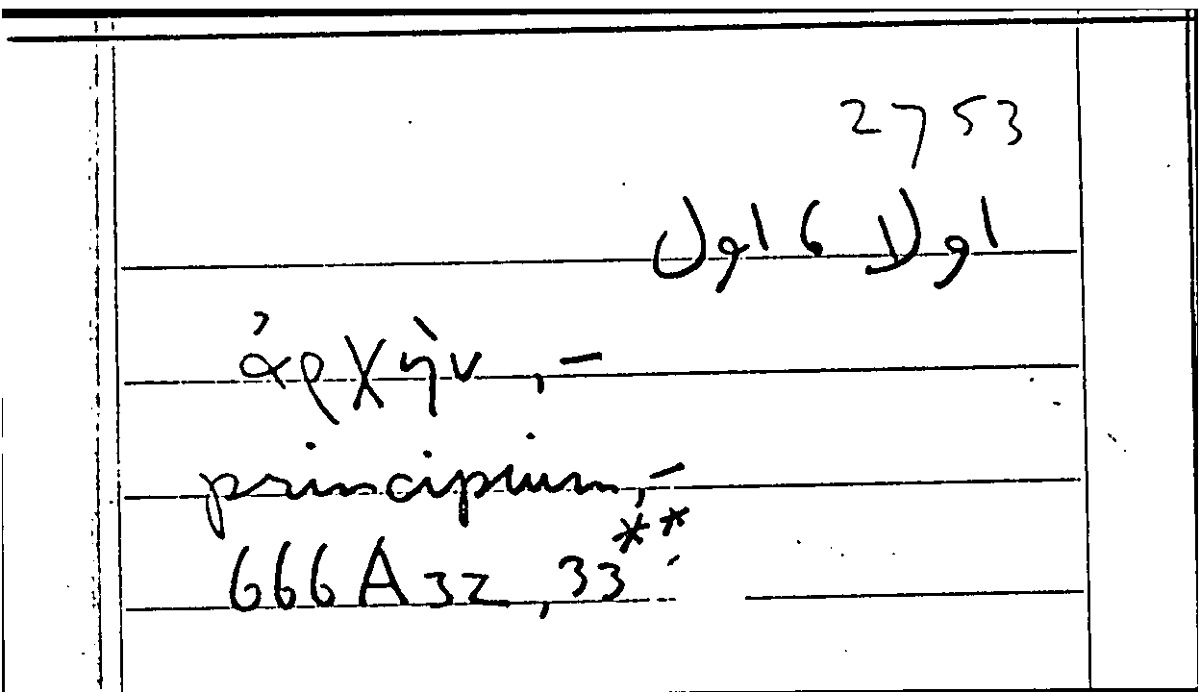 2753
اولا ، اول
ἀρχὴν, –
principium, –
666A32, 33**